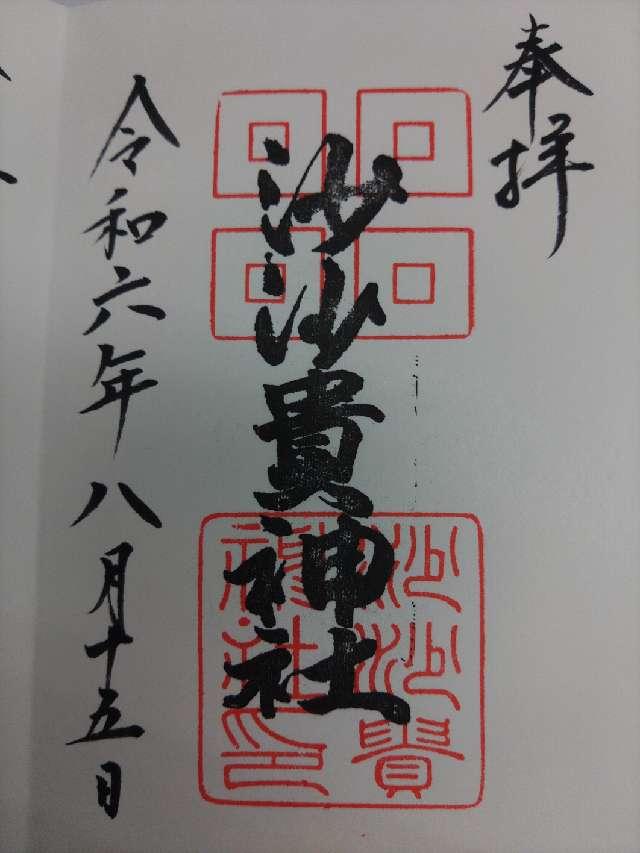 奉拝
沙沙貴神社
沙沙貴
神社印
令和六年八月十五日